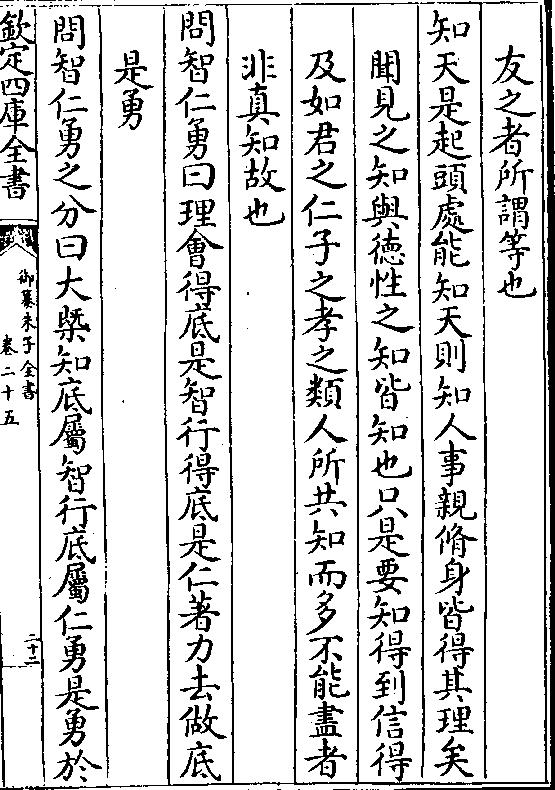 友之者所謂等也
知天是起頭處能知天則知人事親脩身皆得其理矣
聞見之知與德性之知皆知也只是要知得到信得
及如君之仁子之孝之類人所共知而多不能盡者
非真知故也
問智仁勇曰理會得底是智行得底是仁著力去做底
是勇
問智仁勇之分曰大槩知底屬智行底屬仁勇是勇於
欽定四庫全書
御纂朱子全書
卷二十五
二十二